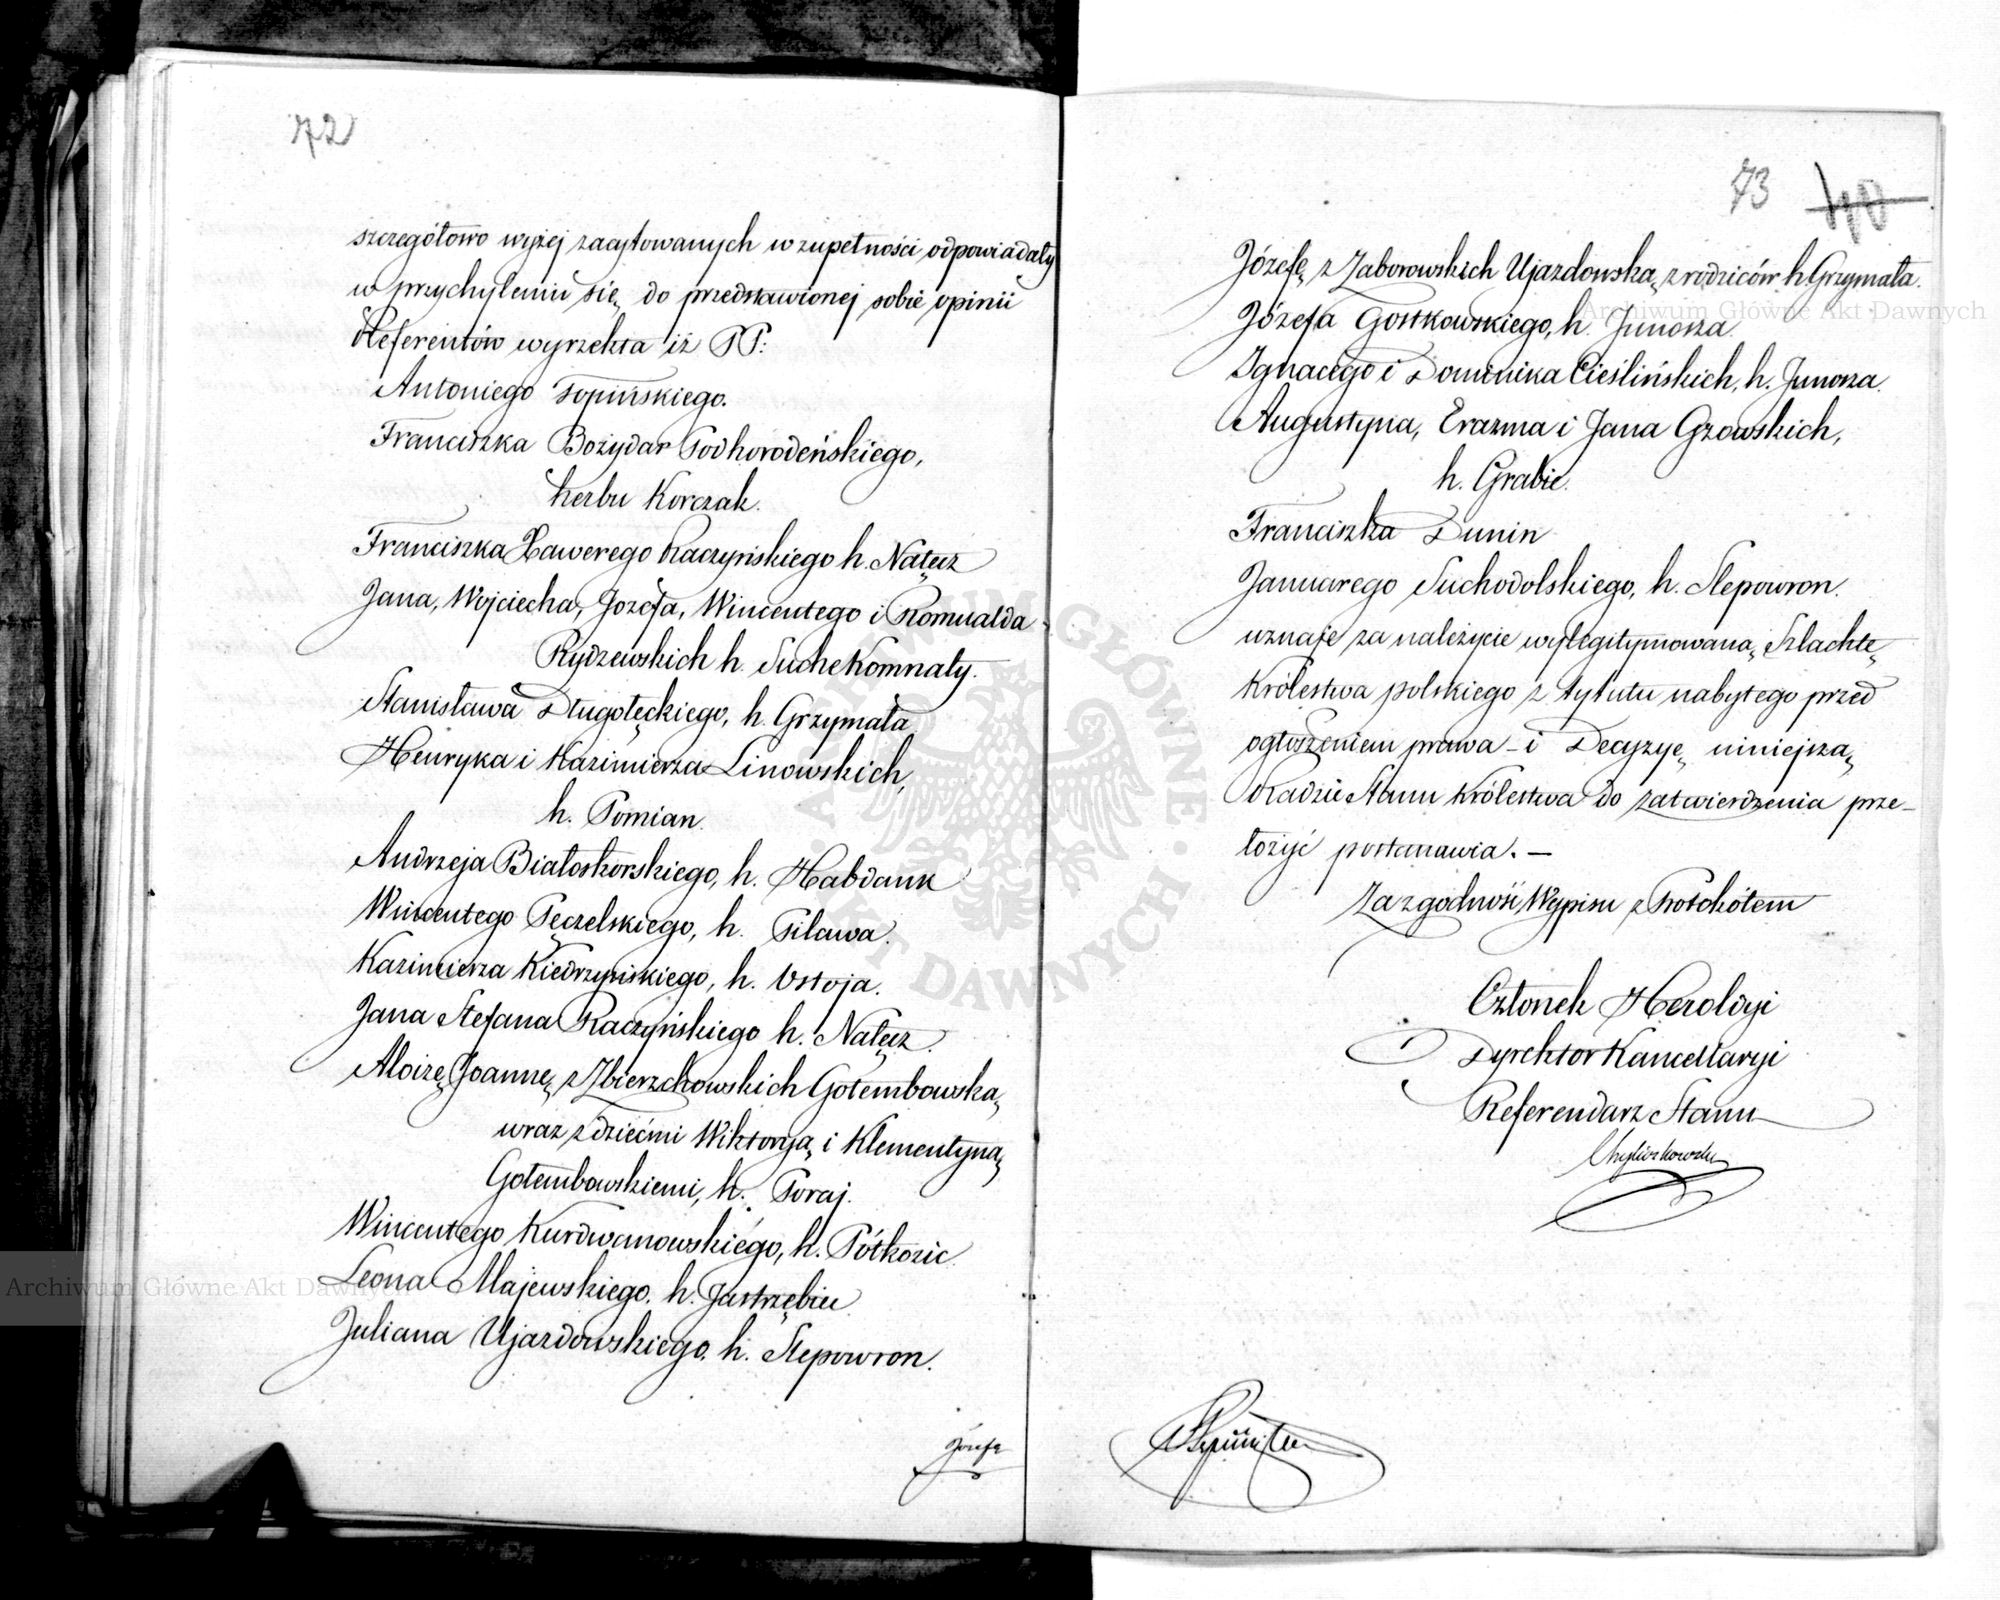 72
szczegółowo wyżej zacytowanych w zupełności odpowiadały
w przychyleniu się do przedstawionej sobie opinii
Referentów wyrzekła iż PP:
Antoniego Topińskiego.
Franciszka Bożydar Podhorodeńskiego,
herbu Korczak.
Franciszka Xawerego Raczyńskiego h. Nałęcz
Jana, Wojciecha, Józefa, Wincentego i Romualda
Rydzewskich h. Suche Komnaty.
Stanisława Długołęckiego, h. Grzymała
Henryka i Kazimierza Linowskich,
h. Pomian.
Andrzeja Białoskorskiego, h. Habdank
Wincentego Pęczelskiego, h. Pilawa.
Kazimierza Kiedrzyńskiego, h. Ostoja.
Jana Stefana Raczyńskiego h. Nałęcz.
Aloizę Joannę z Zbierzchowskich Gołembowską,
wraz z dziećmi Wiktoryą i Klementyną
Gołembowskiemi, h. Poraj.
Wincentego Kurdwanowskiego, h. Półkozic
Leona Majewskiego. h. Jastrzębiec
Juliana Ujazdowskiego. h. Slepowron.
Józefę
73 40
Józefę z Zaborowskich Ujazdowską z rodziców h Grzymała.
Józefa Gostkowskiego, h. Junosza.
Ignacego i Dominika Cieślińskich, h. Junosza.
Augustyna, Erazma i Jana Gzowskich,
h. Grabie.
Franciszka Dunin
Januarego Suchodolskiego, h. Slepowron.
uznaje za należycie wylegitymowaną Szlachtę
Królestwa polskiego z tytułu nabytego przed
ogłoszeniem prawa – i Decyzyę niniejszą
Radzie Stanu Królestwa do zatwierdzenia prze–
łożyć postanawia. —
Za zgodność Wypisu z Protokółem
Członek Heroldyi
Dyrektor Kancellaryi
Referendarz Stanu
Archiwum Główne Akt Dawnych
Archiwum Główne Akt Dawnych
ARCHIWUM GŁÓWNE · AKT DAWNYCH ·